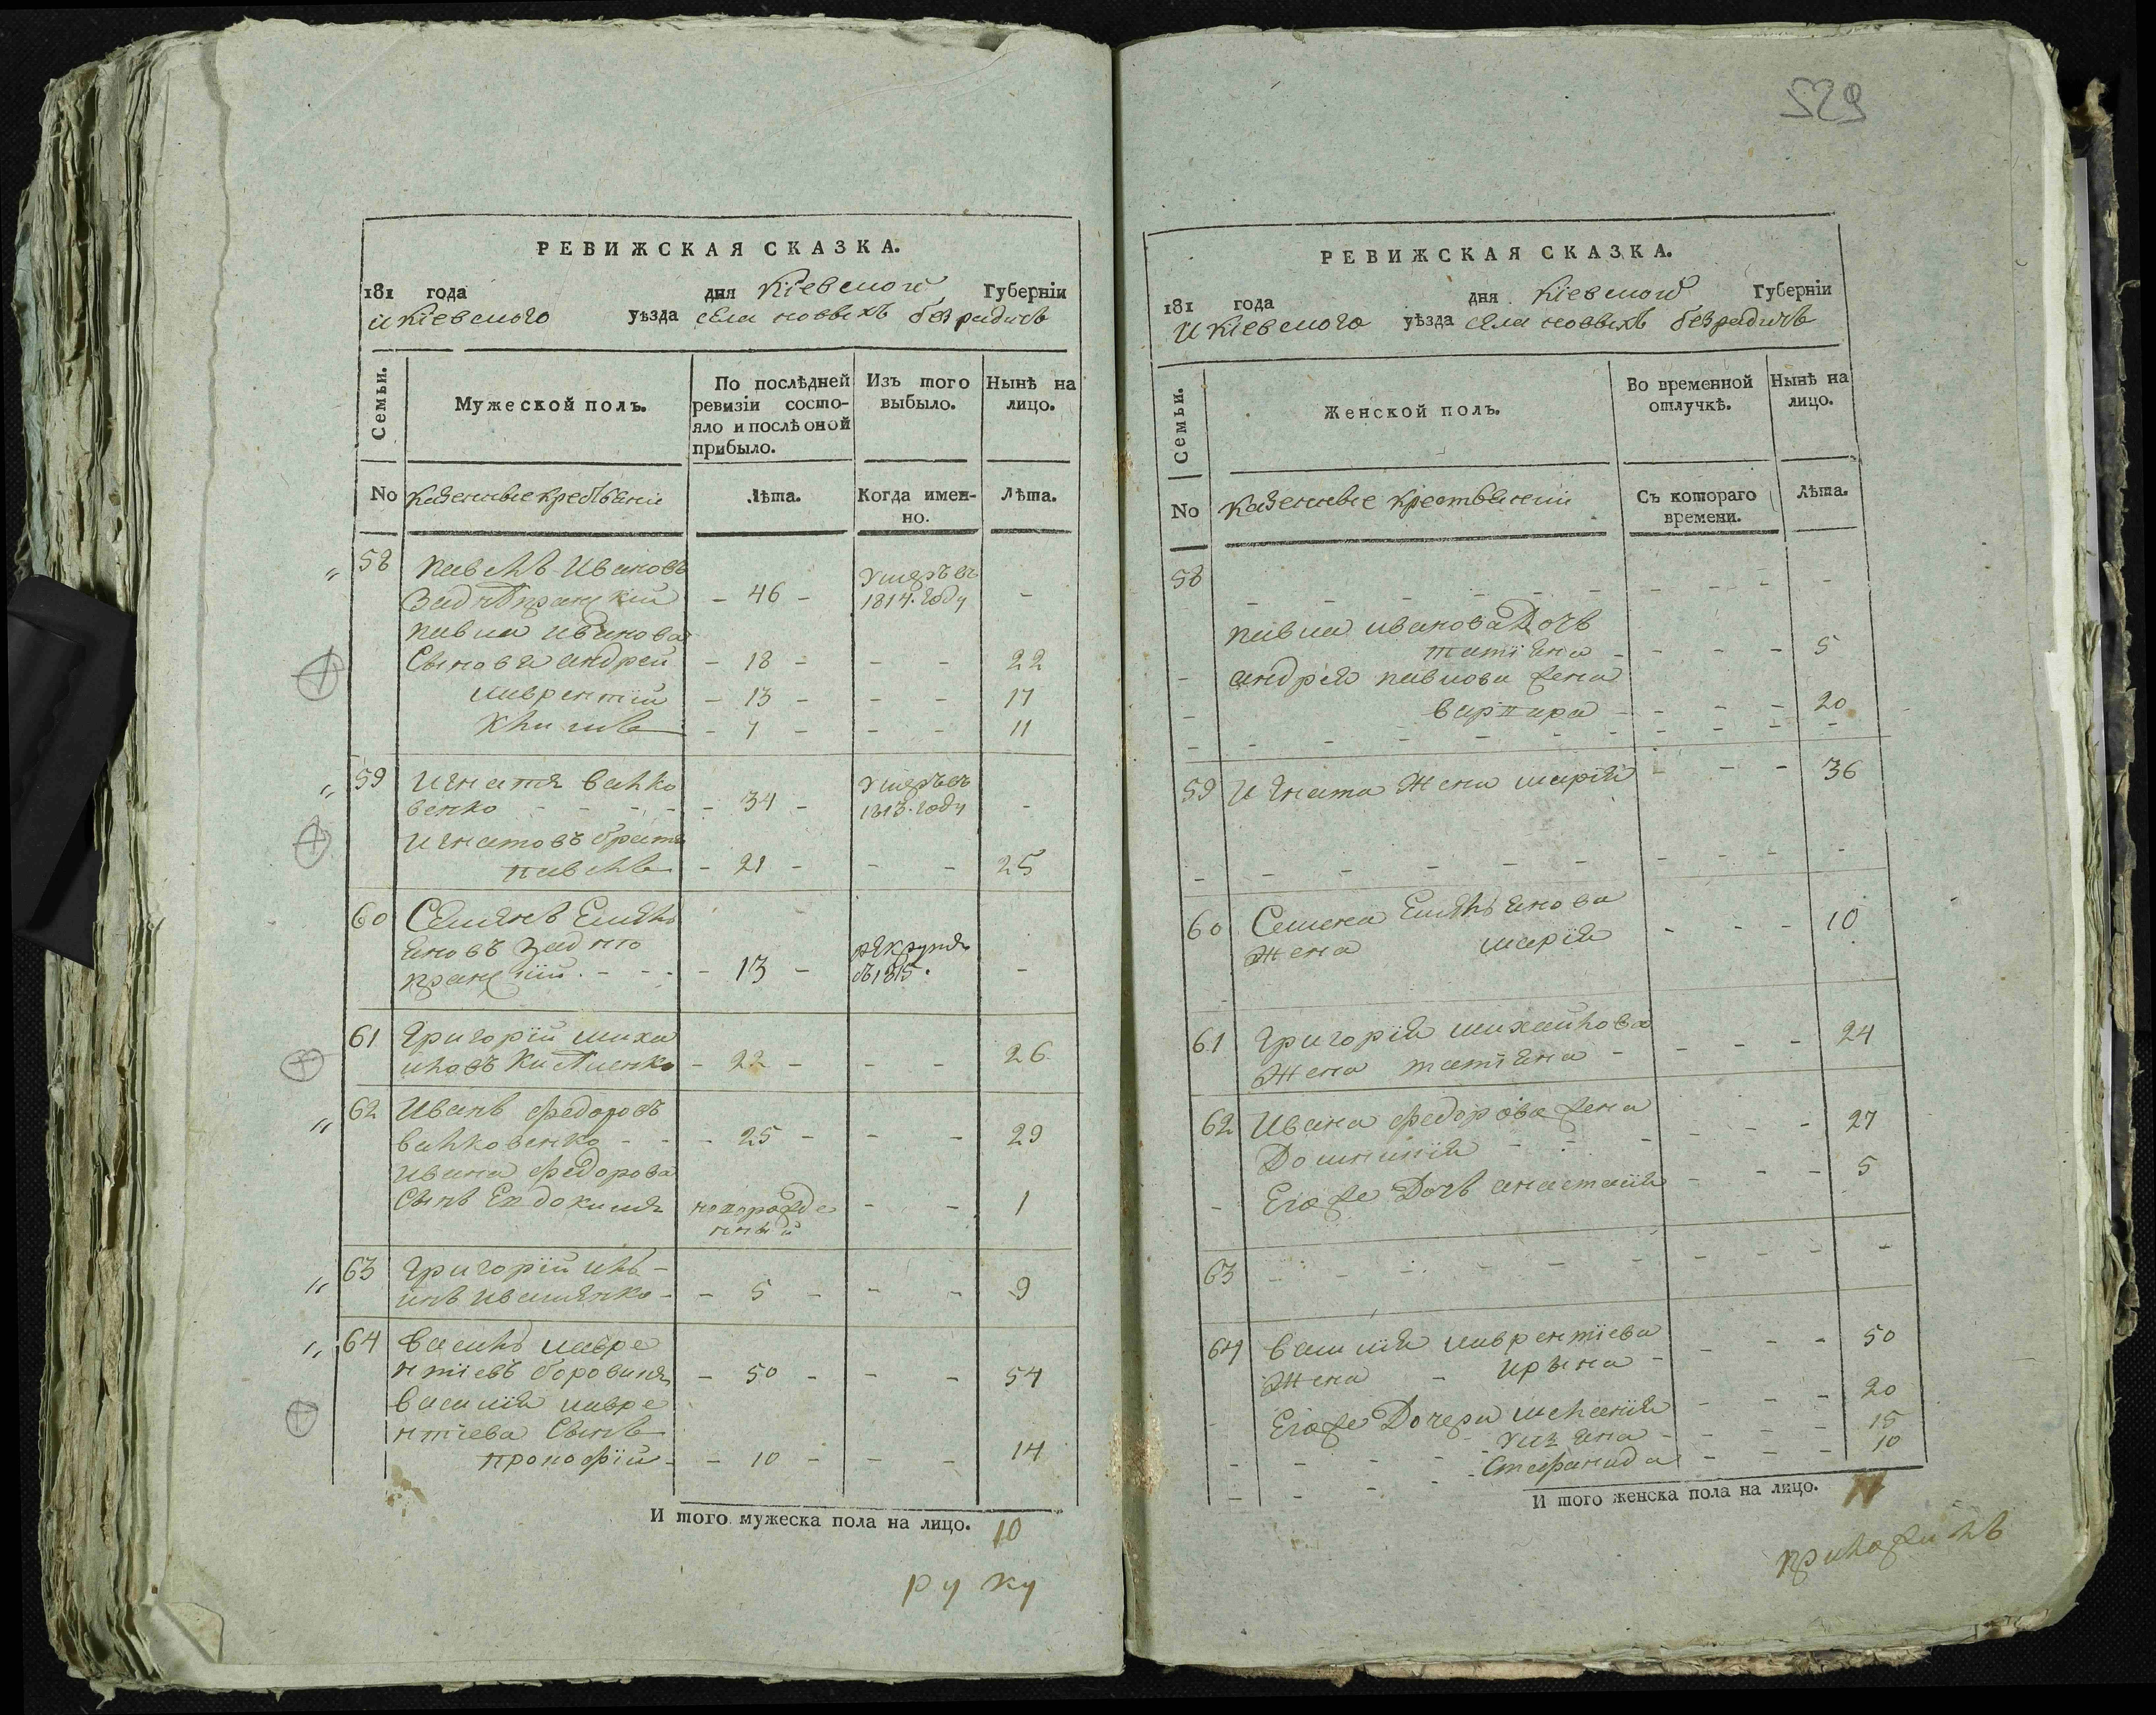 РЕВИЖСКАЯ СКАЗКА.
181 года дня Кіевской Губерніи
и Кіевского уѣзда села новыхъ безрадичъ
Семьи.
Мужеской полъ.
По послѣдней ревизіи состо-
яло и послѣ оной
прибыло.
Изъ того
выбыло.
Нынѣ на
лицо.
No казенные крестьяни
Лѣта.
Когда имен-
но.
Лѣта.
58 павелъ Ивановъ
- 46 - умеръ въ 1814. году -
павла иванова
Сынове андрей - 18 - - - 22
лаврентий - 13 - - - 17
- 7 - - - 11
59 игнатъ валко
венко - 34 - умеръ въ 1813. году -
игнатовъ братъ
павелъ - 21 - - - 25
60 Семенъ Емель
яновъ - 13 - рекрутъ въ 1815. -
61 григорій миха
иловъ - 22 - - - 26
62 Иванъ федоровъ
валковенко - 25 - - - 29
ивана федорова
Сынъ Евдокимъ новорожде
нный - - 1
63 григорій иль-
инъ ивашенко - 5 - - - 9
64 василь лавре
нтіевъ боровикъ - 50 - - - 54
василия лавре
нтіева Сынъ
прокофій - 10 - - - 14
И того мужеска пола на лицо. 10
руку
529
РЕВИЖСКАЯ СКАЗКА.
181 года дня Кіевской Губерніи
и Кіевского уѣзда села новыхъ безрадичъ
Семьи.
Женской полъ.
Во временной
отлучкѣ.
Нынѣ на
лицо.
No казенные крестьянки
Съ котораго
времени.
Лѣта.
58
павла иванова Дочь
татіяна - - - 5
андрея павлова жена
варвара - - - 20
59 игната жена марія - - - 36
60 Семена Емельянова
жена марія - - - 10
61 григорія михайлова
жена татіяна - - - 24
62 Ивана федорова жена
Домникія - - - 27
Его же Дочь анастасія - - - 5
63
64 василія лаврентіева
жена - ирына - - - 50
Его же Дочери меланія - - - 20
уліяна - - - 15
Стефанида - - - 10
И того женска пола на лицо. 11
приложилъ